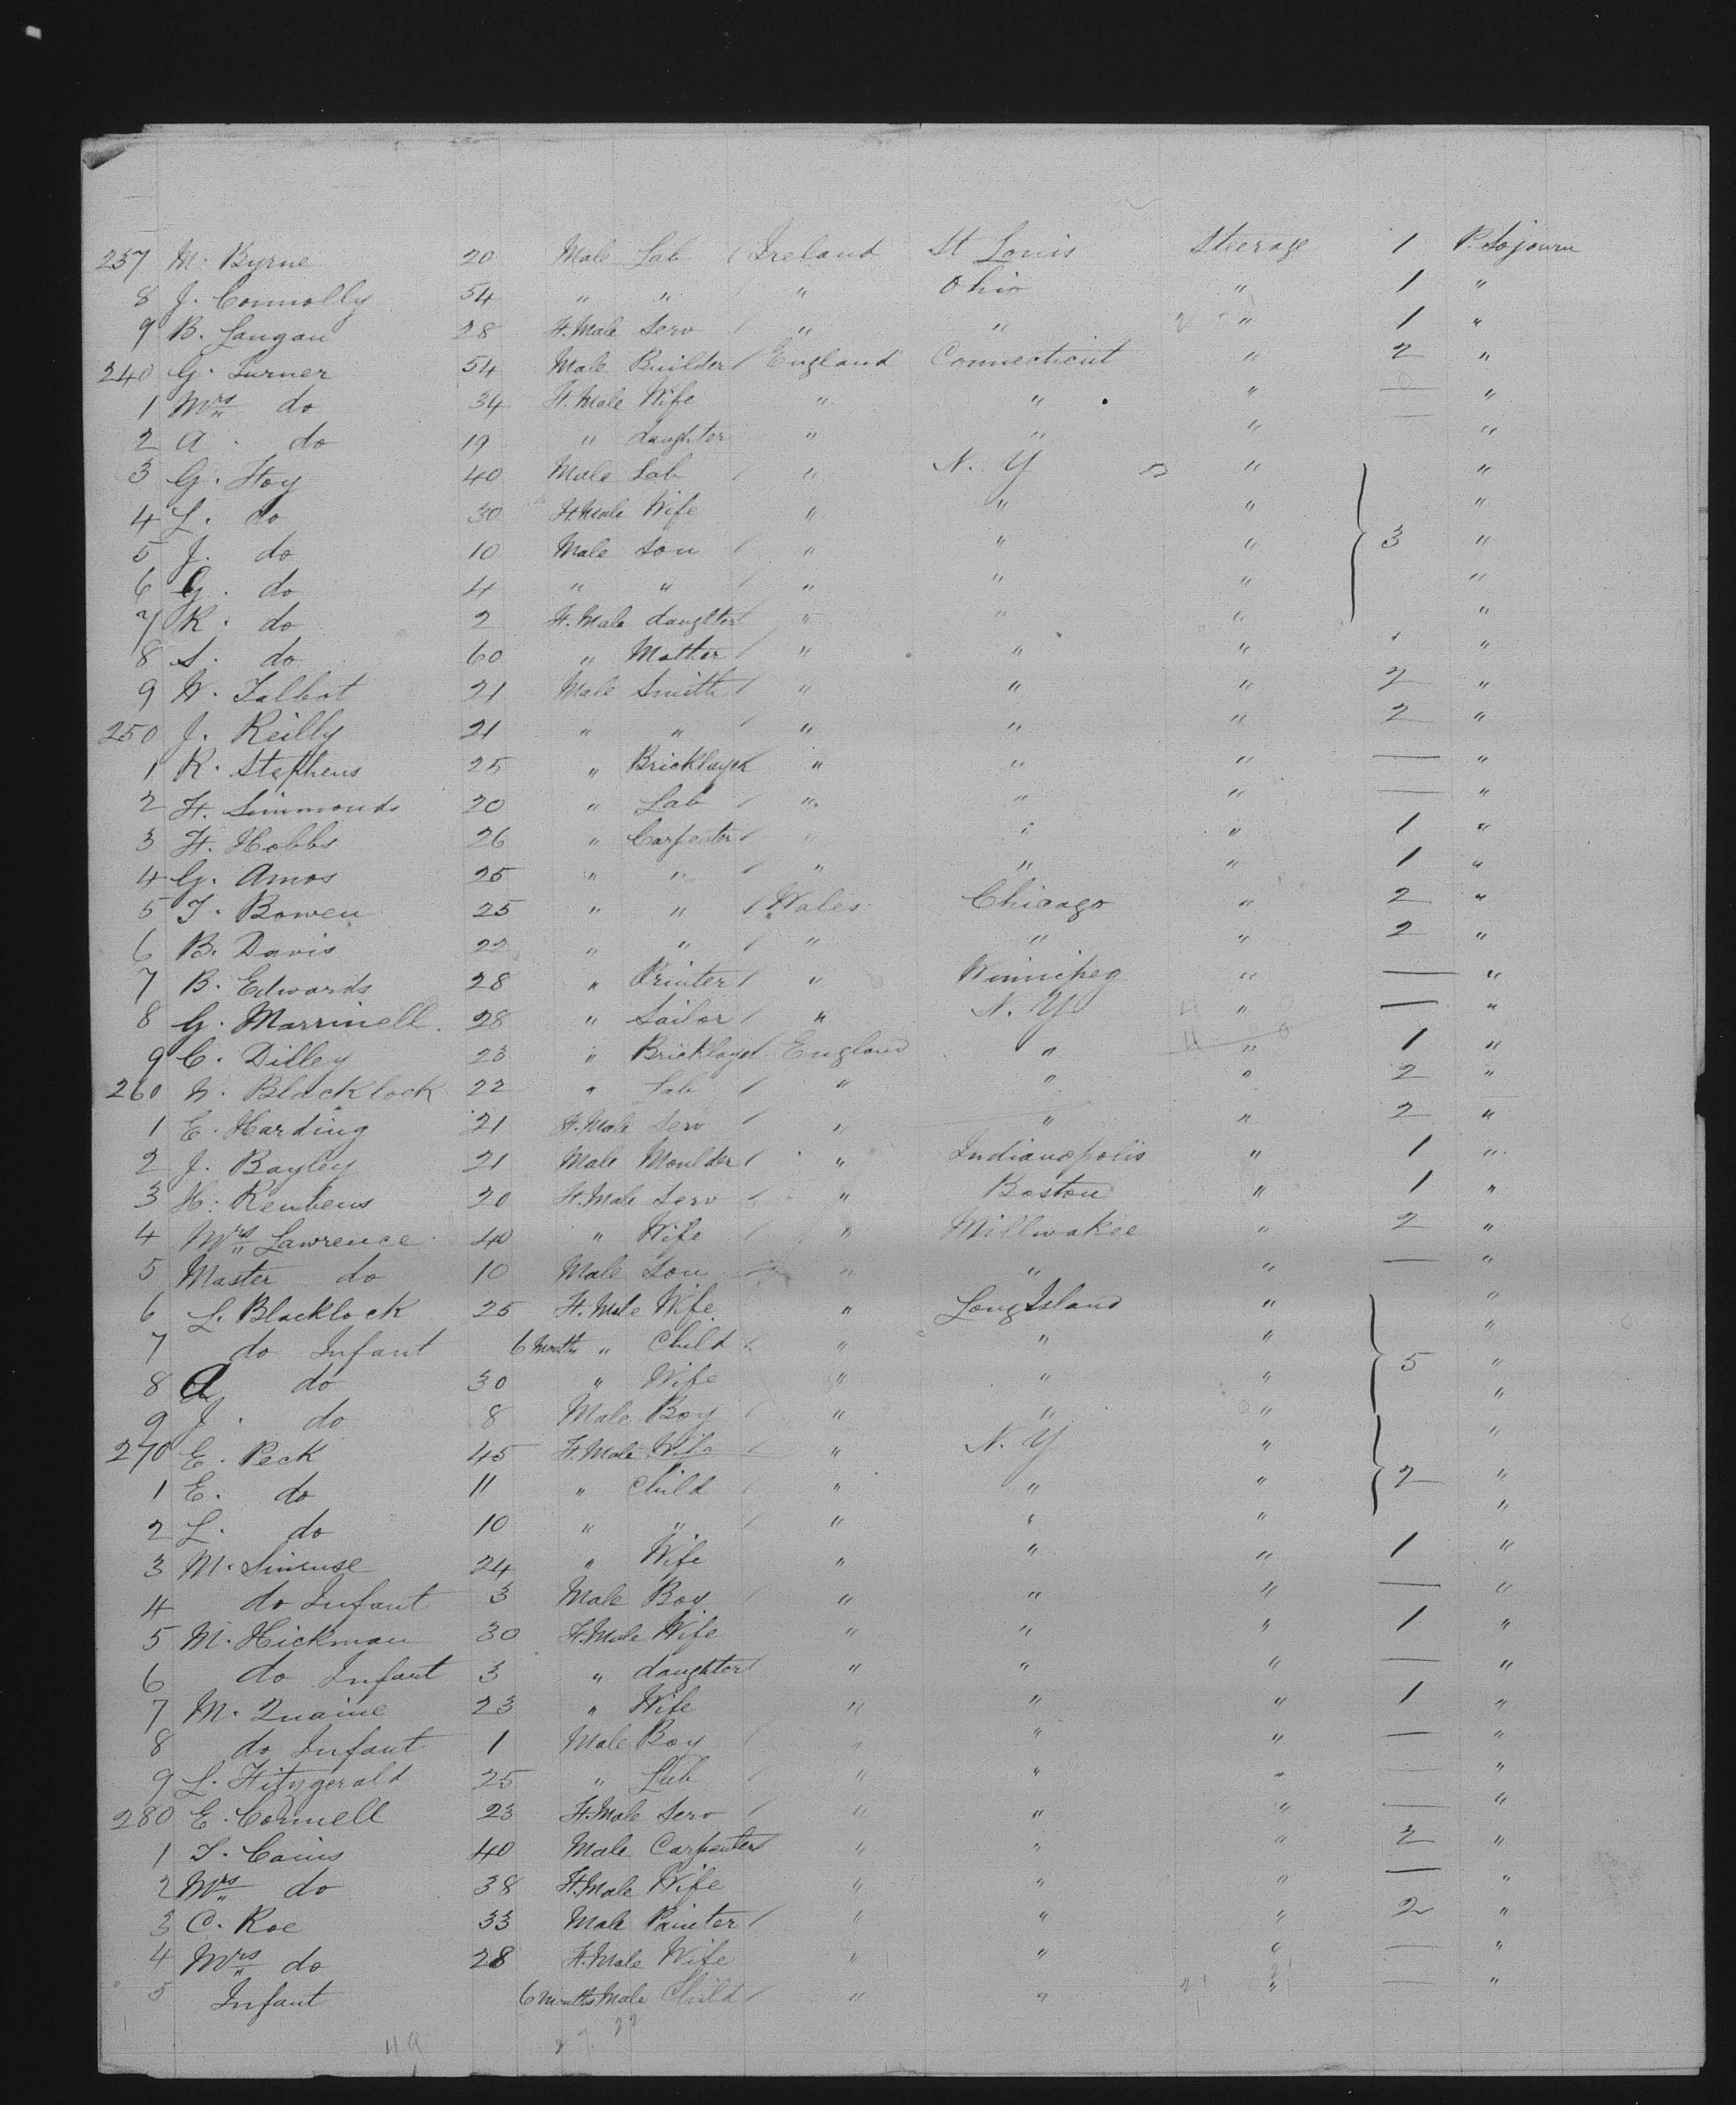 237 M. Byrne 20 Male Lab / Ireland St Louis Steerage 1 P. Sojourn
8 J. Connolly 54 " " / " Ohio " 1 "
9 B. Langan 28 F.Male Serv / " " " 1 "
240 G. Turner 54 Male Builder / England Connecticut " 2 "
1 Mrs do 34 F.Male Wife " " " — "
2 A. do 19 " daughter " " " — "
3 G. Hoy 40 Male Lab / " N. Y " "
4 L. do 30 F.Male Wife " " " "
5 J. do 10 Male Son / " " " 3 "
6 G. do 4 " " / " " " "
7 K. do 2 F.Male daughter / " " " "
8 S. do 60 " Mother / " " " "
9 W. Talbot 21 Male Smith / " " " 2 "
250 J. Reilly 21 " " / " " " 2 "
1 R. Stephens 25 " Bricklayer " " " — "
2 H. Simmonds 20 " Lab / " " " — "
3 H. Hobbs 26 " Carpenter / " " " 1 "
4 G. Amos 25 " " / " " " 1 "
5 T. Bowen 25 " " / Wales Chicago " 2 "
6 B. Davis 22 " " / " " " 2 "
7 B. Edwards 28 " Printer / " Winnipeg " — "
8 G. Marrinell 28 " Sailor / " N. Y " — "
9 C. Dilley 23 " Bricklayer England " " 1 "
260 W. Blacklock 22 " Lab / " " " 2 "
1 E. Harding 21 F.Male Serv / " " " 2 "
2 J. Bayley 21 Male Moulder / " Indianapolis " 1 "
3 H. Reubens 20 F.Male Serv / " Boston " 1 "
4 Mrs Lawrence 40 " Wife / " Millwakee " 2 "
5 Master do 10 Male Son " " " — "
6 L. Blacklock 25 F.Male Wife " Long Island " "
7 do Infant 6 Months " Child / " " " "
8 A do 30 " Wife " " " 5 "
9 J. do 8 Male Boy / " " " "
270 E. Peck 45 F.Male Wife / " N. Y " "
1 E. do 11 " Child / " " " 2 "
2 L. do 10 " " / " " " "
3 M. 24 " Wife " " " 1 "
4 do Infant 3 Male Boy / " " " — "
5 M. Hickman 30 F.Male Wife " " " 1 "
6 do Infant 3 " daughter / " " " — "
7 M. Quaine 23 " Wife " " " 1 "
8 do Infant 1 Male Boy / " " " — "
9 L. Fitzgerald 25 " Lab / " " " — "
280 E. Cornell 23 F.Male Serv / " " " — "
1 T. Cains 40 Male Carpenter / " " " 2 "
2 Mrs do 38 F.Male Wife " " " — "
3 C. Roe 33 Male Painter / " " " 2 "
4 Mrs do 28 F.Male Wife " " " — "
5 Infant 6 months Male Child / " " " — "
49